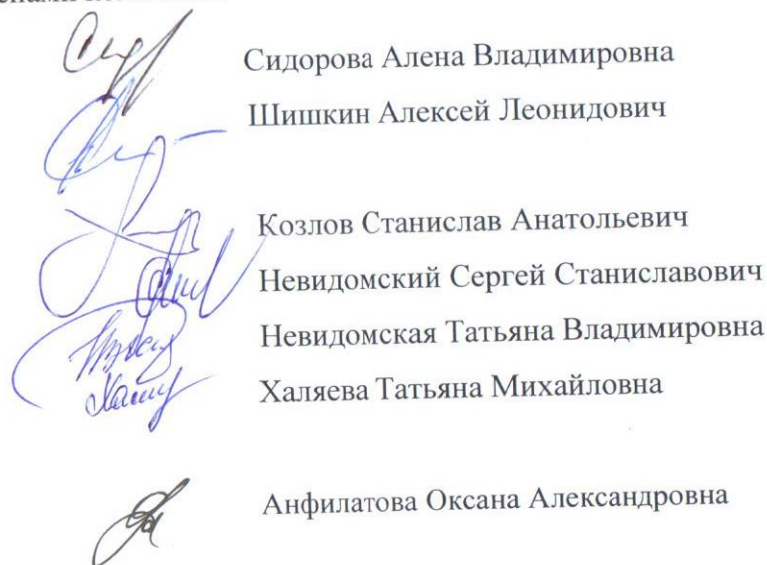 Сидорова Алена Владимировна
Шишкин Алексей Леонидович
Козлов Станислав Анатольевич
Невидомский Сергей Станиславович
Невидомская Татьяна Владимировна
Халяева Татьяна Михайловна
Анфилатова Оксана Александровна